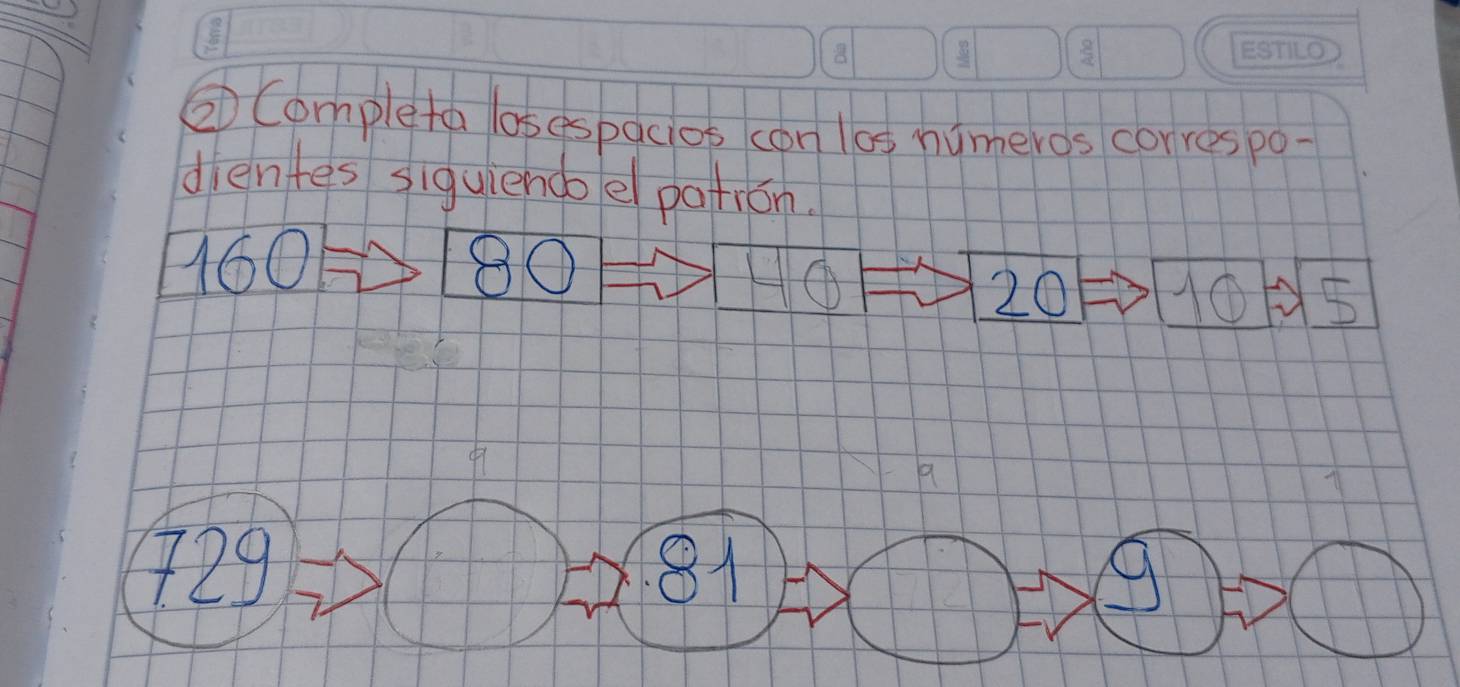 Tema Día Mes Año ESTILO
② Completa los espacios con los números correspo-
dientes siguiendo el patrón.
160 80 40 20 10 5
9 9 1
729 81 9